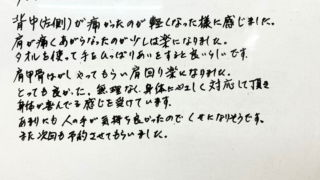 背中(左側)が痛かったのが軽くなった様に感じました。
肩が痛くあがらなったのが少しは楽になりました。
タオルを使って手をひっぱりあいをすると良いらしいです。
肩甲骨はがしやってもらい肩回り楽になりました。
とっても良かった。無理なく身体にやさしく対応して頂き
身体が喜んでる感じを受けています。
あまりにも人の手が気持ち良かったのでくせになりそうです。
また次回も予約させてもらいました。